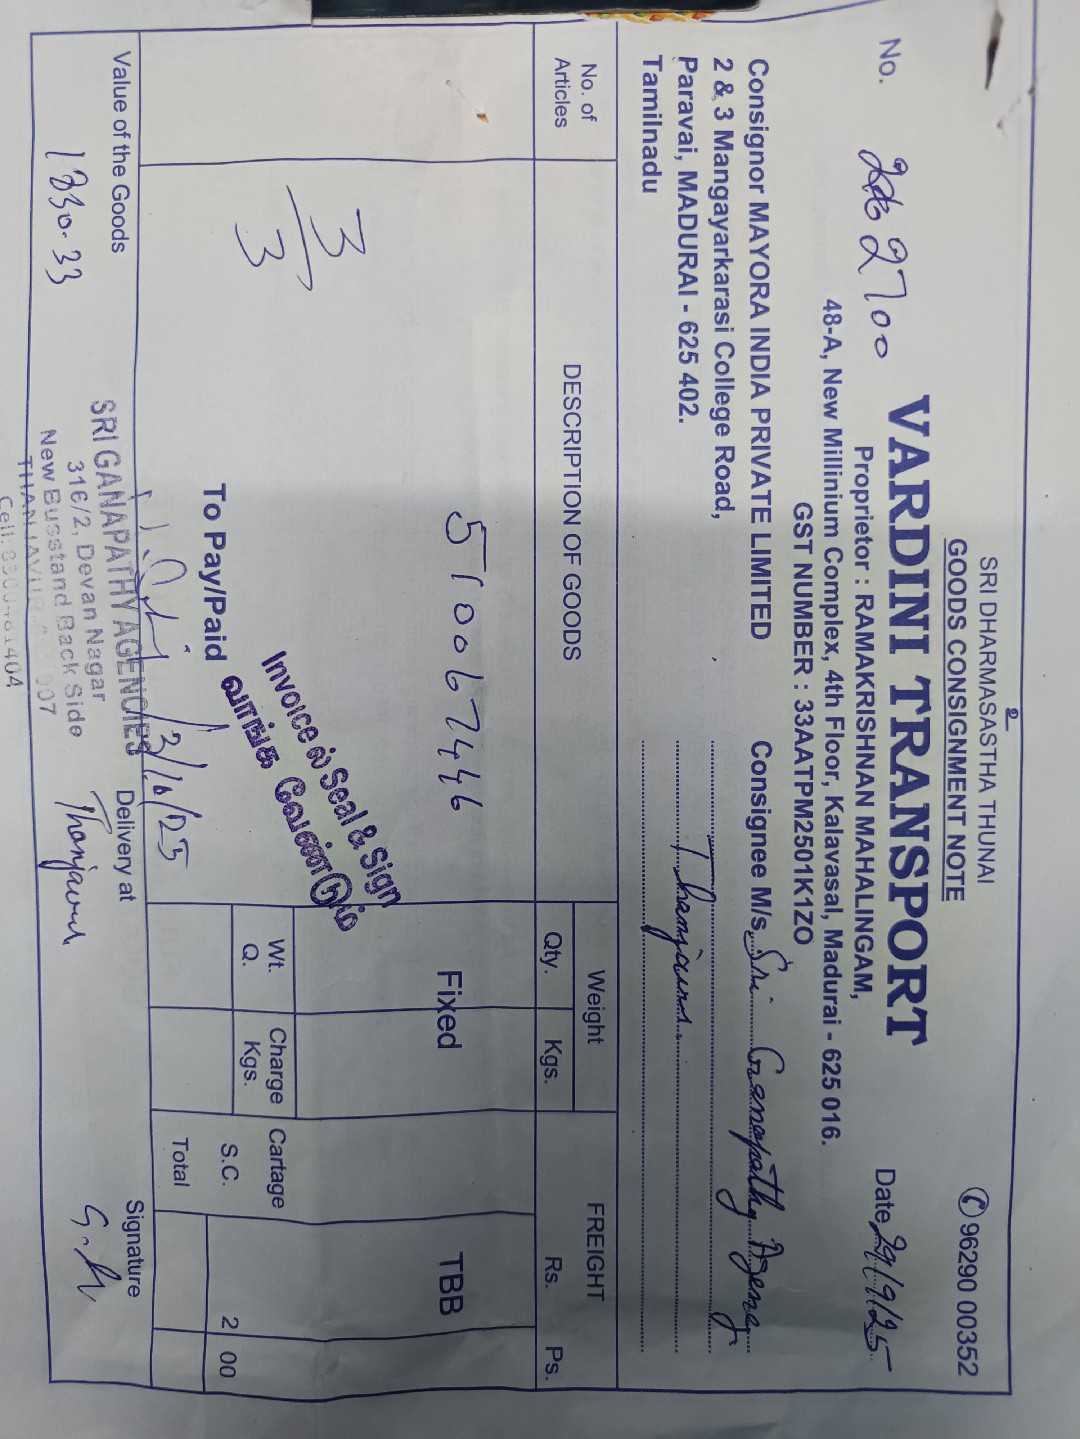 உ
SRI DHARMASASTHA THUNAI
GOODS CONSIGNMENT NOTE
✆ 96290 00352
No. 2700
VARDINI TRANSPORT
Date 29/9/25
Proprietor : RAMAKRISHNAN MAHALINGAM,
48-A, New Millinium Complex, 4th Floor, Kalavasal, Madurai - 625 016.
GST NUMBER : 33AATPM2501K1ZO
Consignor MAYORA INDIA PRIVATE LIMITED
2 & 3 Mangayarkarasi College Road,
Paravai, MADURAI - 625 402.
Tamilnadu
Consignee M/s. Sri Ganapathy Agency
Thanjavur.
No. of Articles
DESCRIPTION OF GOODS
Weight
Qty. Kgs.
FREIGHT
Rs. Ps.
510067446
Fixed
TBB
3/3
Invoice ல் Seal & Sign
வாங்க வேண்டும்
To Pay/Paid
Wt. Q.
Charge Kgs.
Cartage
S.C. 2 00
Total
3/10/25
Value of the Goods
1330.33
SRI GANAPATHY AGENCIES
316/2, Devan Nagar
New Busstand Back Side
THANJAVUR 007
Cell:
Delivery at
Thanjavur
Signature